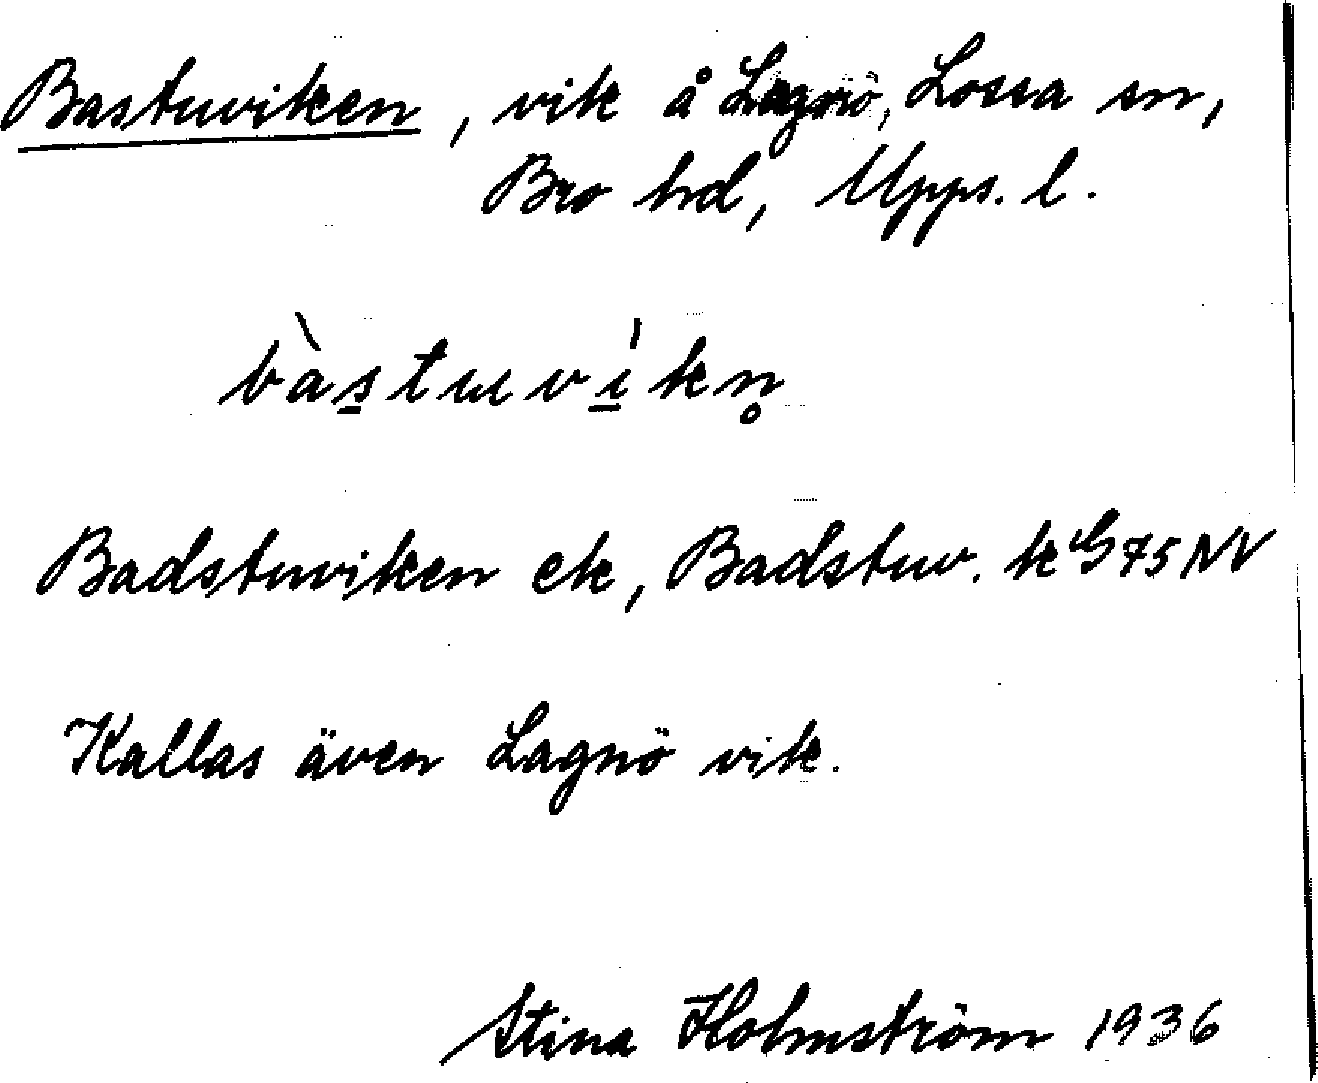 Bastuviken, vik å Lagnö, Lossa sn,
Bro hd, Upps. l.
bàs̲tuvi̲̍kn̥
Badstuviken ek, Badstuv. k G 75 NV
Kallas även Lagnö vik.
Stina Holmström 1936